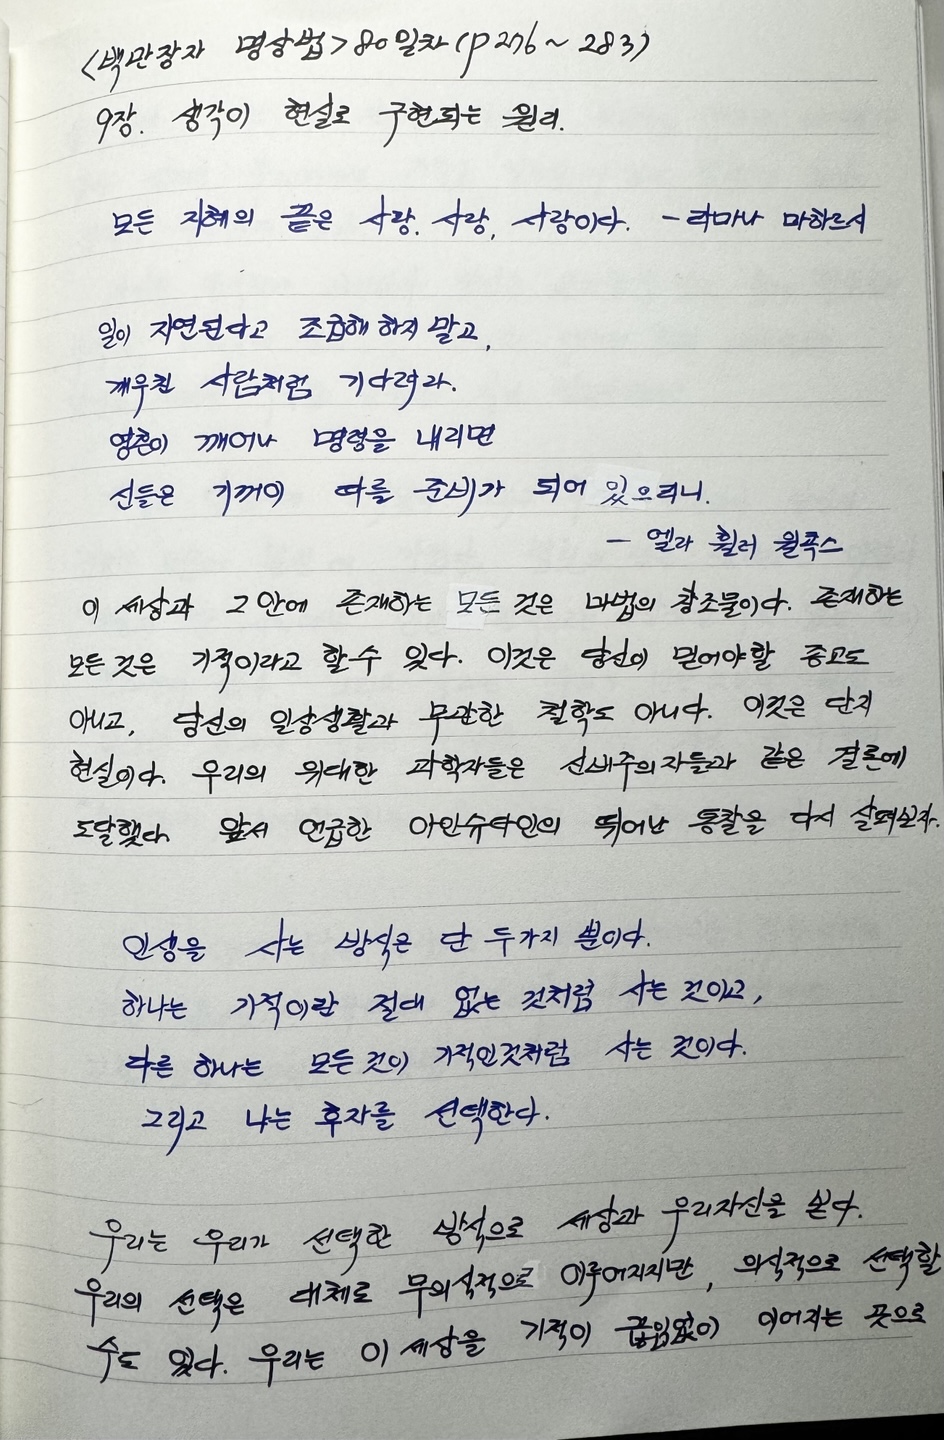 <백만장자 명상법> 80일차 (p276~283)
9장. 생각이 현실로 구현되는 원리.
모든 지혜의 끝은 사랑. 사랑, 사랑이다. - 라마나 마하르시
일이 지연된다고 조급해 하지 말고,
깨우친 사람처럼 기다려라.
영혼이 깨어나 명령을 내리면
신들은 기꺼이 따를 준비가 되어 있으리니.
- 엘라 휠러 윌콕스
이 세상과 그 안에 존재하는 모든 것은 마법의 창조물이다. 존재하는
모든 것은 기적이라고 할 수 있다. 이것은 당신이 믿어야할 종교도
아니고, 당신의 일상생활과 무관한 철학도 아니다. 이것은 단지
현실이다. 우리의 위대한 과학자들은 신비주의자들과 같은 결론에
도달했다. 앞서 언급한 아인슈타인의 뛰어난 통찰을 다시 살펴보자.
인생을 사는 방식은 단 두가지 뿐이다.
하나는 기적이란 절대 없는 것처럼 사는 것이고,
다른 하나는 모든 것이 기적인것처럼 사는 것이다.
그리고 나는 후자를 선택한다.
우리는 우리가 선택한 방식으로 세상과 우리자신을 본다.
우리의 선택은 대체로 무의식적으로 이루어지지만, 의식적으로 선택할
수도 있다. 우리는 이 세상을 기적이 끊임없이 이어지는 곳으로